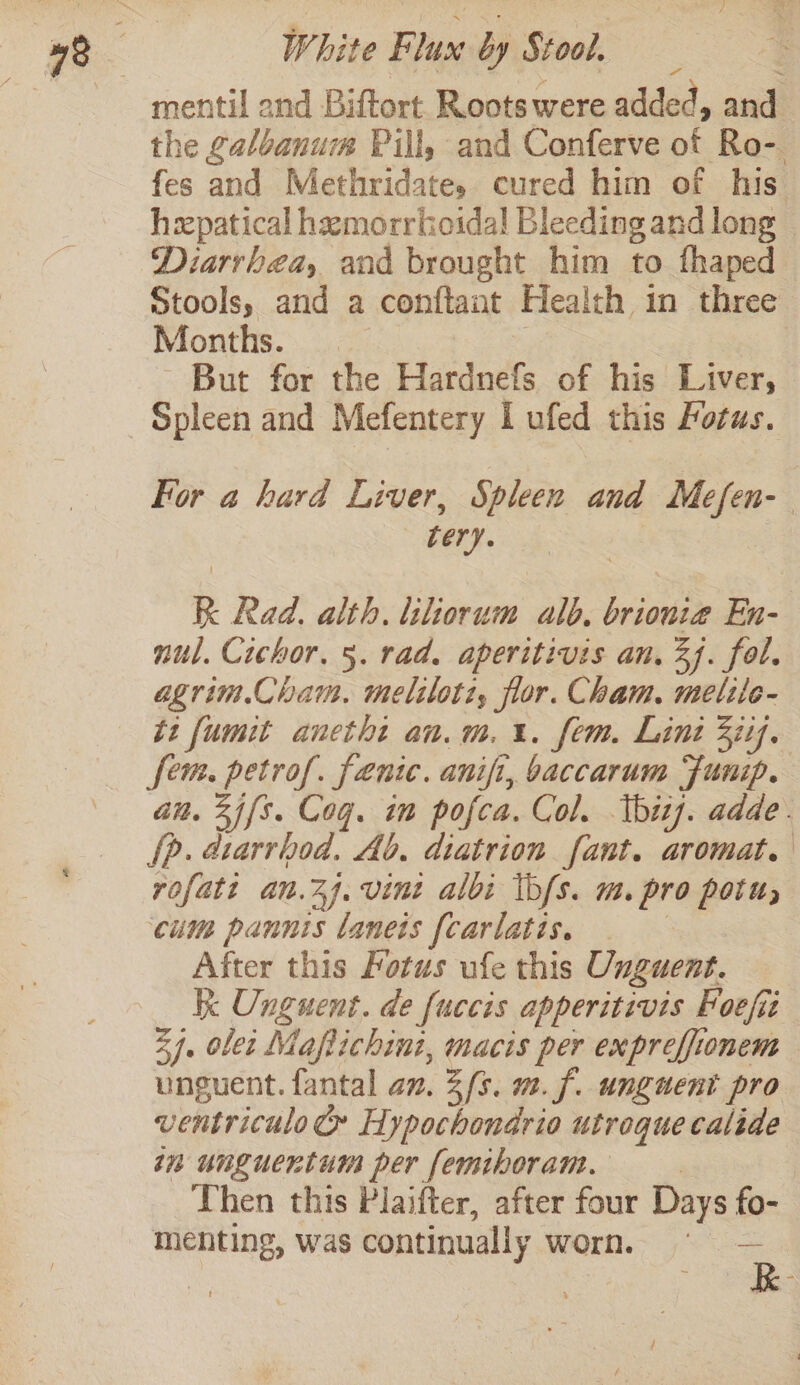 78 White Flux by Stool.
mentil and Biſtort Roots were added, and
the galbanum Pill, and Conſerve of Ro-
ſes and Methridate, cured him of his
hæpatical hæmorrhoidal Bleeding and long
Diarrhæa, and brought him to ſhaped
Stools, and a conſtant Health in three
Months.
But for the Hardneſs of his Liver,
Spleen and Meſentery I uſed this Fotus.
For a hard Liver, Spleen and Meſen-
tery.
℞ Rad. alth. liliorum alb. brioniæ En-
nul. Cichor. 5. rad. aperitivis an. ℥j. fol.
agrim. Cham. meliloti, flor. Cham. melilo-
ti ſumit anethi an. m. 1. ſem. Lini ℥iij.
ſem. petroſ. fænic. aniſi, baccarum Junip.
an. ℥jſs. Coq. in poſca. Col. ℔iij. adde
ſp. diarrhod. Ab. diatrion ſant. aromat.
roſati an.ʒj. vini albi ℔ſs. m. pro potu,
cum pannis laneis ſcarlatis.
After this Fotus uſe this Unguent.
℞ Unguent. de ſuccis apperitivis Foeſii
℥j. olei Maſtichini, macis per expreſſionem
unguent. ſantal an. ℥ſs. m. f. unguent pro
ventriculo & Hypochondrio utroque calide
in unguentum per ſemihoram.
Then this Plaiſter, after four Days fo-
menting, was continually worn. —
℞